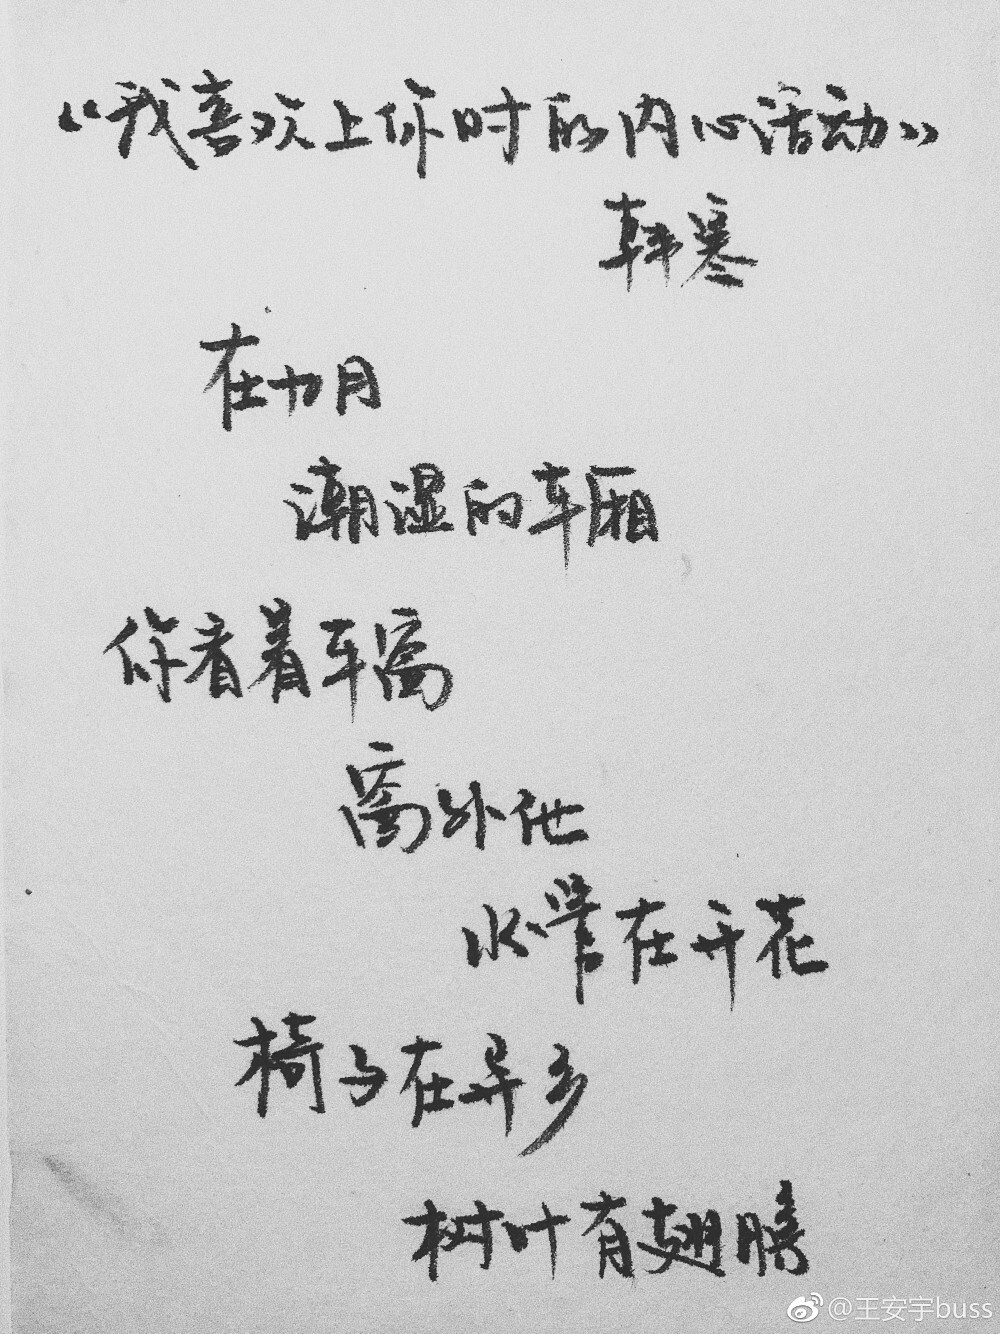 《我喜欢上你时的内心活动》
韩寒
在九月
潮湿的车厢
你看着车窗
窗外他
水管在开花
椅子在异乡
树叶有翅膀
@王安宇buss